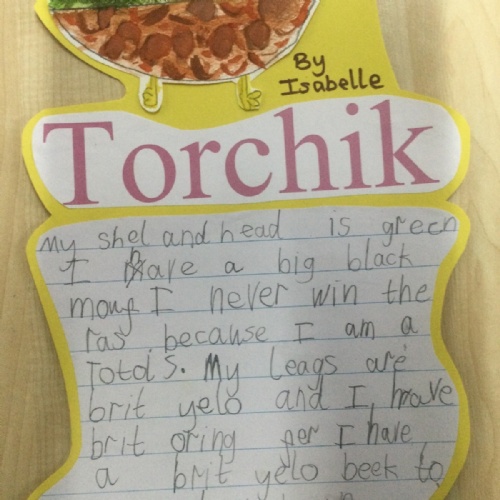 By
Isabelle
Torchik
My shel and head is green
I have a big black
I never win the
ras because I am a
Totols. My leags are
brit yelo and I have
brit oring I have
a brit yelo beek to